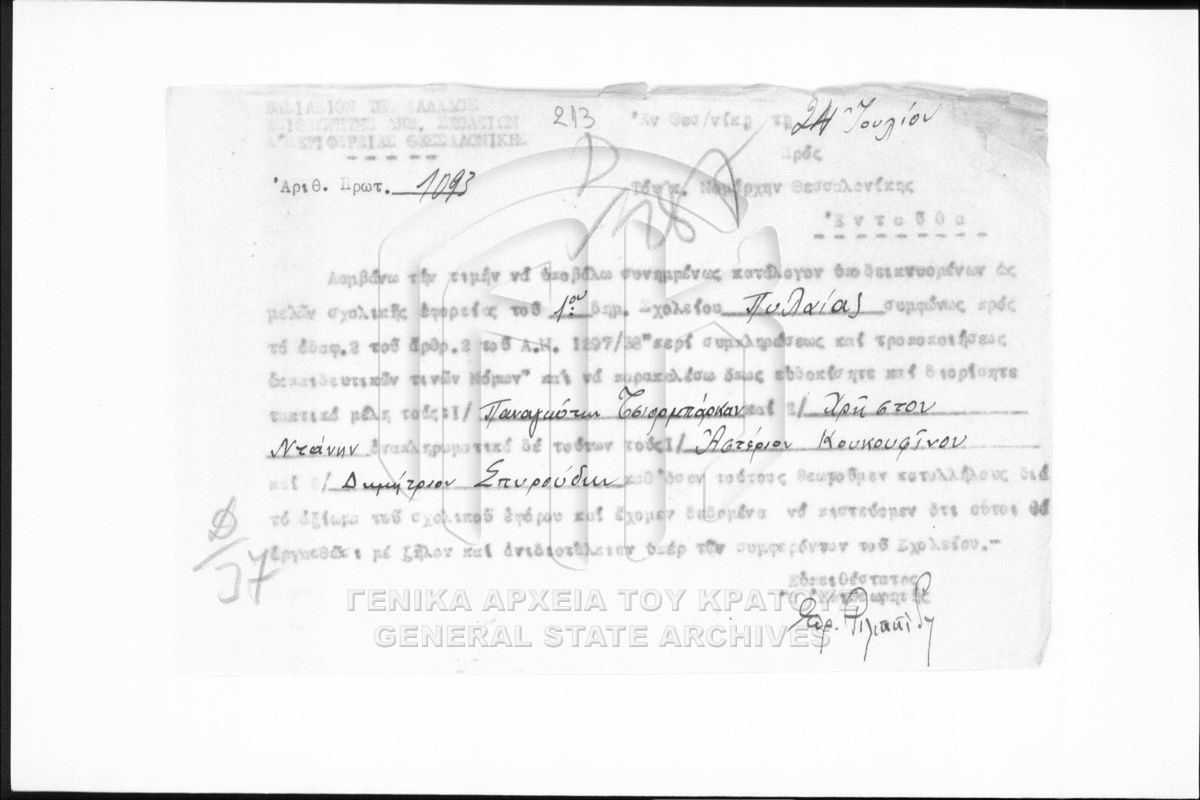 ΒΑΣΙΛΕΙΟΝ ΤΗΣ ΕΛΛΑΔΟΣ
ΕΠΙΘΕΩΡΗΣΙΣ ΔΗΜ. ΣΧΟΛΕΙΩΝ
Α΄ ΠΕΡΙΦΕΡΕΙΑΣ ΘΕΣΣΑΛΟΝΙΚΗΣ
213
Ἐν Θεσ/νίκῃ τῇ 24 Ἰουλίου
Πρός
Ἀριθ. Πρωτ. 1093
Τόν κ. Νομάρχην Θεσσαλονίκης
Ἐνταῦθα
Λαμβάνω τήν τιμήν νά ὑποβάλω συνημμένως κατάλογον ὑποδεικνυομένων ὡς
μελῶν σχολικῆς ἐφορείας τοῦ 1ου δημ. Σχολείου Πυλαίας συμφώνως πρός
τό ἐδαφ.2 τοῦ ἄρθρ.2 τοῦ Α.Ν. 1297/38 "περί συμπληρώσεως καί τροποποιήσεως
ἐκπαιδευτικῶν τινῶν Νόμων" καί νά παρακαλέσω ὅπως εὐδοκήσητε καί διορίσητε
τακτικά μέλη τούς:1/ Παναγιώτην Τσιορμπάρκαν καί 2/ Χρῆστον
Ντάνην ἀναπληρωματικά δέ τούτων τούς1/ Ἀστέριον Κουκουφῖνον
καί 2/ Δημήτριον Σπυρούδην καθ'ὅσον τούτους θεωροῦμεν καταλλήλους διά
τό ἀξίωμα τοῦ σχολικοῦ ἐφόρου καί ἔχομεν δεδομένα νά πιστεύωμεν ὅτι οὗτοι θά
ἐργασθῶσι μέ ζῆλον καί ἀνιδιοτέλειαν ὑπέρ τῶν συμφερόντων τοῦ Σχολείου.-
Εὐπειθέστατος
Ὁ Ἐπιθεωρητής
ΓΕΝΙΚΑ ΑΡΧΕΙΑ ΤΟΥ ΚΡΑΤΟΥΣ
GENERAL STATE ARCHIVES